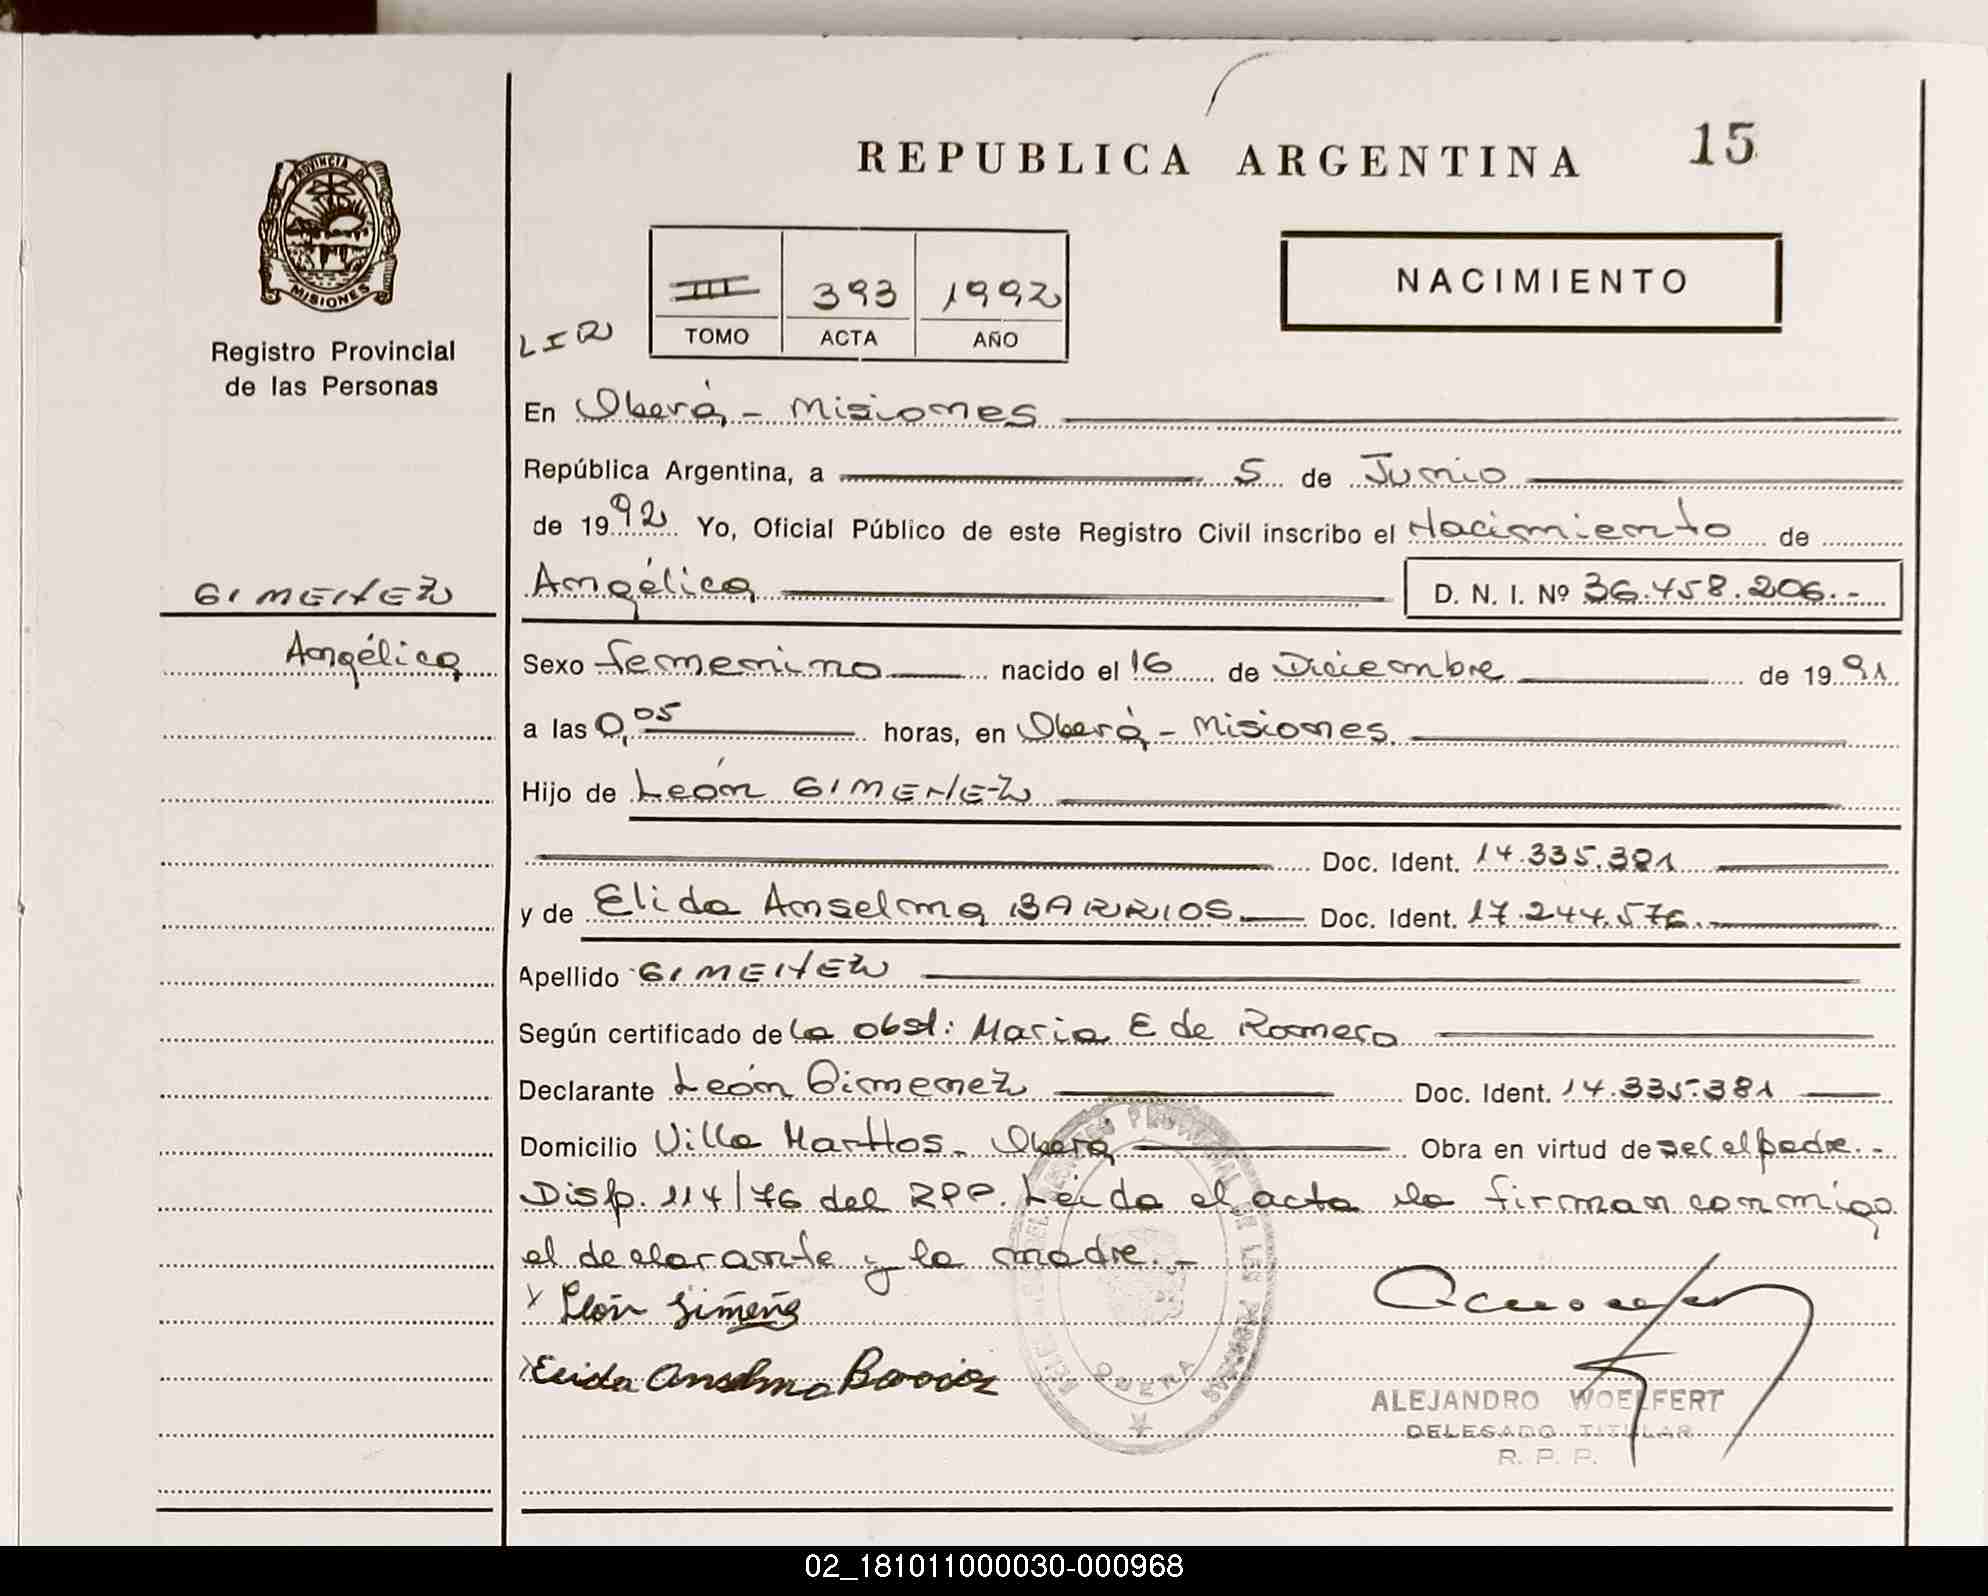 REPUBLICA ARGENTINA
15
PROVINCIA DE
MISIONES
Registro Provincial
de las Personas
III 393 1992
TOMO ACTA AÑO
NACIMIENTO
En Oberá - Misiones
República Argentina, a 5 de Junio
de 1992 Yo, Oficial Público de este Registro Civil inscribo el Nacimiento de
GIMENEZ
Angélica
Angélica D. N. I. Nº 36.458.206.-
Sexo femenino nacido el 16 de Diciembre de 1991
a las 0,05 horas, en Oberá - Misiones
Hijo de León GIMENEZ
Doc. Ident. 14.335.381
y de Elida Anselma BARRIOS Doc. Ident. 17.244.576.
Apellido GIMENEZ
Según certificado de la obst: Maria E de Romero
Declarante León Gimenez Doc. Ident. 14.335.381
Domicilio Villa Marttos - Oberá Obra en virtud de ser el padre.-
Disp. 114/76 del RPP. Leida el acta la firman conmigo
el declarante y la madre.-
León Gimenez
Elida Anselma Barrios
REGISTRO PROVINCIAL DE LAS PERSONAS
OBERA
ALEJANDRO WOELFERT
DELEGADO TITULAR
R. P. P.
02_181011000030-000968